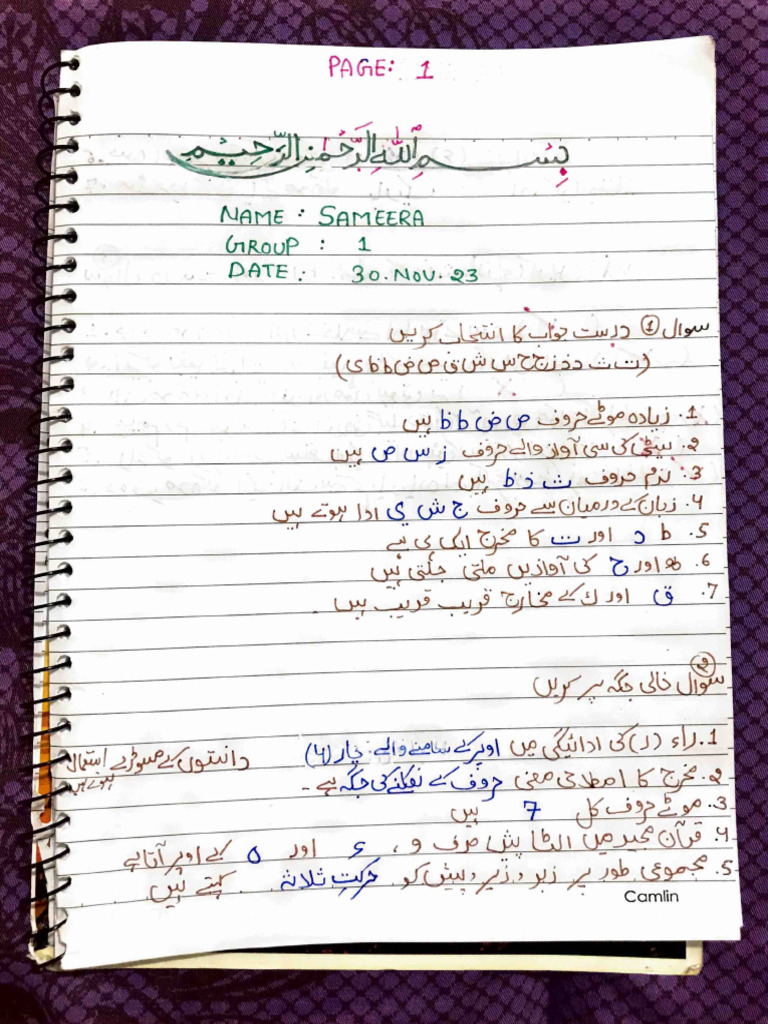 PAGE: 1
بِسْمِ اللّٰهِ الرَّحْمٰنِ الرَّحِيْمِ
NAME : SAMEERA
GROUP : 1
DATE : 30.NOV.23
سوال ① درست جواب کا انتخاب کریں
(ت ث د ذ ز ج ح س ش ق ص ض ط ظ ی)
1. زیادہ موٹے حروف ص ض ط ظ ہیں
2. سیٹی کی سی آواز والے حروف ز س ص ہیں
3. نرم حروف ث ذ ظ ہیں
4. زبان کے درمیان سے حروف ج ش ی ادا ہوتے ہیں
5. ط د اور ت کا مخرج ایک ہی ہے
6. ھ اور ح کی آوازیں ملتی جلتی ہیں
7. ق اور ک کے مخارج قریب قریب ہیں .
سوال ② خالی جگہ پر کریں
1. راء (ر) کی ادائیگی میں اوپر کے سامنے والے چار (4) دانتوں کے مسوڑے استعمال ہوتے ہیں
2. مخرج کا اصطلاحی معنی حروف کے نکلنے کی جگہ ہے -
3. موٹے حروف کل 7 ہیں
4. قرآن مجید میں الٹا پیش صرف و ، ء اور ہ کے اوپر آتا ہے
5. مجموعی طور پر زبر ، زیر ، پیش کو حرکتِ ثلاثہ کہتے ہیں
Camlin